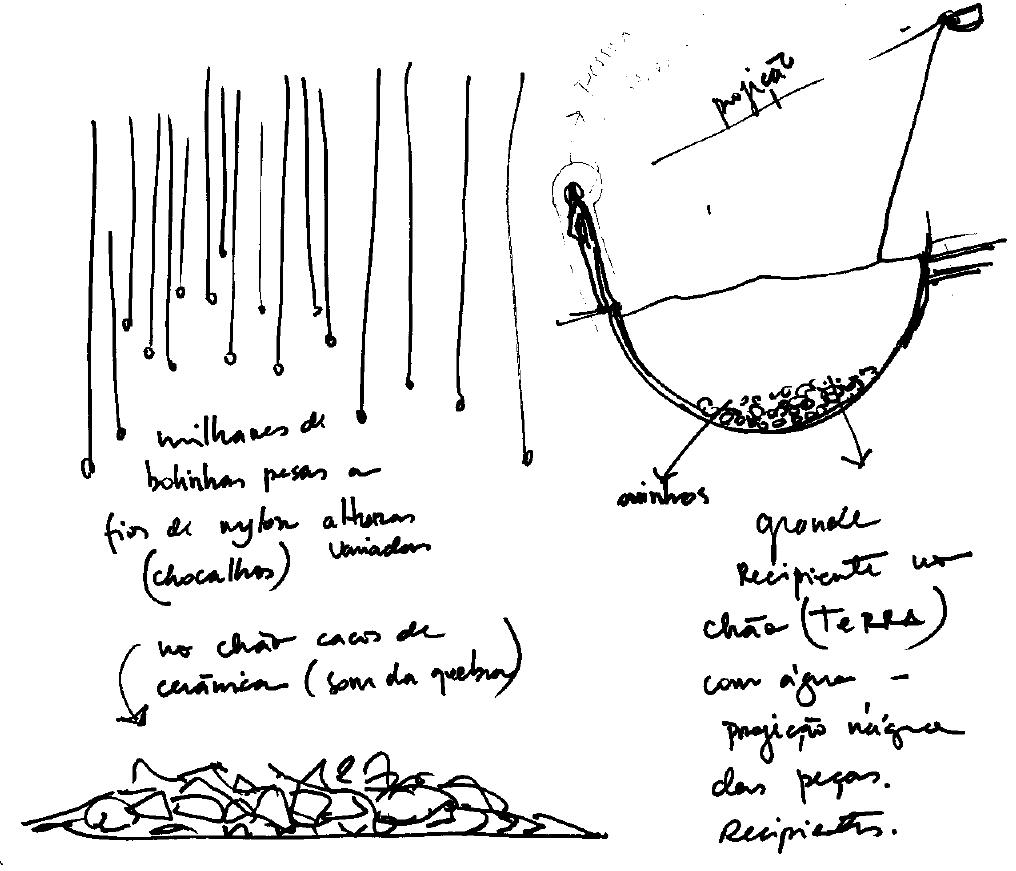 milhares de
bolinhas presas a
fios de nylon alturas
variadas
(chocalhos)
no chão cacos de
cerâmica (som da quebra)
projeção
grande
Recipiente no
chão (TERRA)
com água –
projeção n'água
das peças.
Recipientes.